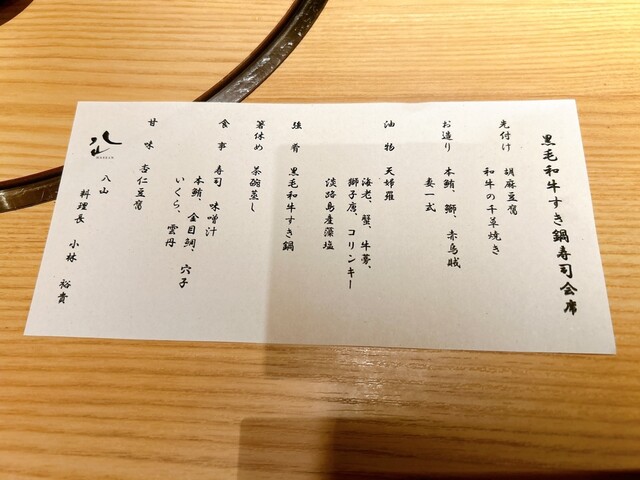 黒毛和牛すき鍋寿司会席
先付け　胡麻豆腐
和牛の千草焼き
お造り　本鮪、鰤、赤烏賊
妻一式
油物　天婦羅
海老、蟹、牛蒡、
獅子唐、コリンキー
淡路島産藻塩
強肴　黒毛和牛すき鍋
箸休め　茶碗蒸し
食事　寿司　味噌汁
本鮪、金目鯛、穴子
いくら、雲丹
甘味　杏仁豆腐
八山
料理長　小林　裕貴
八山